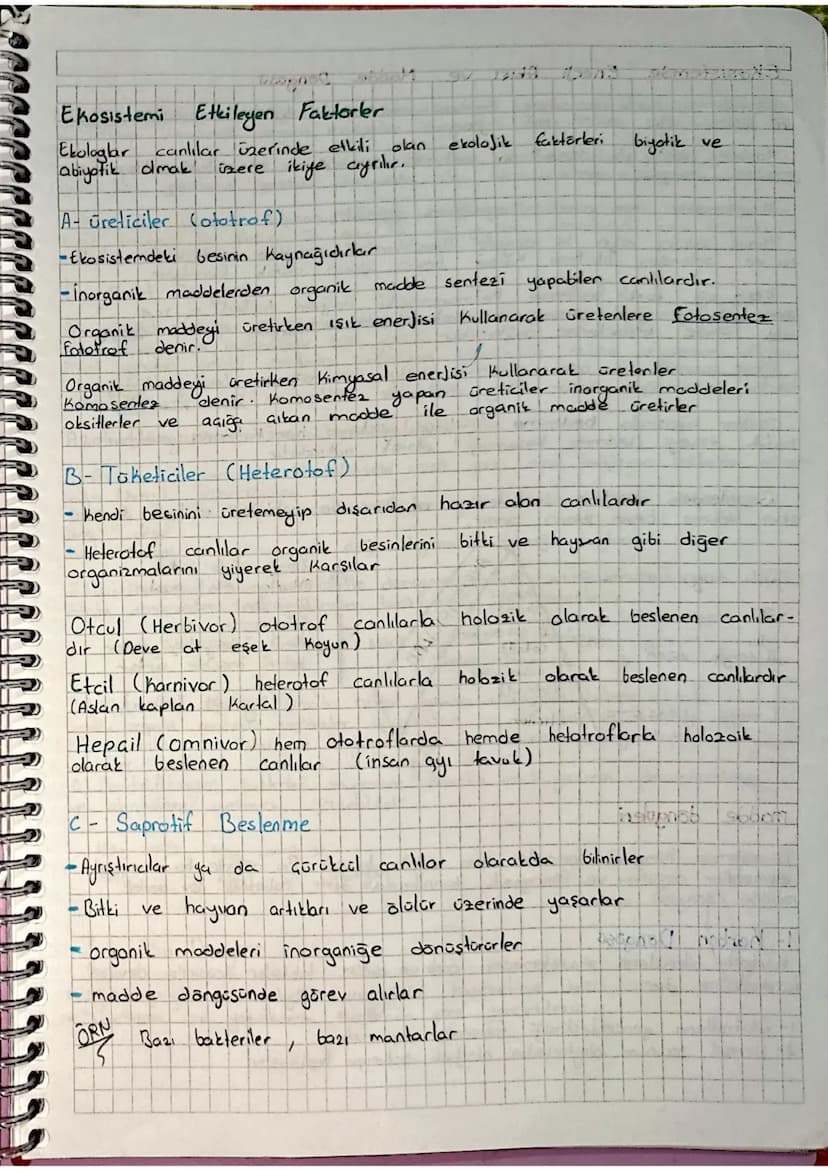 Ekosistemi Etkileyen Faktörler
Ekologlar canlılar üzerinde etkili olan ekolojik faktörleri biyotik ve
abiyotik olmak üzere ikiye ayrılır.
A- üreticiler (ototrof)
-Ekosistemdeki besinin kaynağıdırlar
-İnorganik maddelerden organik madde sentezi yapabilen canlılardır.
Organik maddeyi üretirken ışık enerjisi kullanarak üretenlere fotosentez
fototrof denir.
Organik maddeyi üretirken kimyasal enerjisi kullanarak üretenler
Komosentez denir. Komosentez yapan üreticiler inorganik maddeleri
oksitlerler ve açığa çıkan madde ile organik madde üretirler
B- Tüketiciler (Heterotof)
- Kendi besinini üretemeyip dışarıdan hazır alan canlılardır
- Heterotof canlılar organik besinlerini bitki ve hayvan gibi diğer
organizmalarını yiyerek karşılar
Otcul (Herbivor) ototrof canlılarla holozik olarak beslenen canlılar-
dır (Deve at eşek koyun)
Etcil (karnivor) heterotof canlılarla holozik olarak beslenen canlılardır
(Aslan kaplan kartal)
Hepcil (omnivor) hem ototroflarda hemde hetotroflarla holozoik
olarak beslenen canlılar (insan ayı tavuk)
C - Saprotif Beslenme
- Ayrıştırıcılar ya da çürükcül canlılar olarakda bilinirler
- Bitki ve hayvan artıkları ve ölüler üzerinde yaşarlar
- organik maddeleri inorganiğe dönüştürürler
- madde döngüsünde görev alırlar
ÖRN Bazı bakteriler, bazı mantarlar